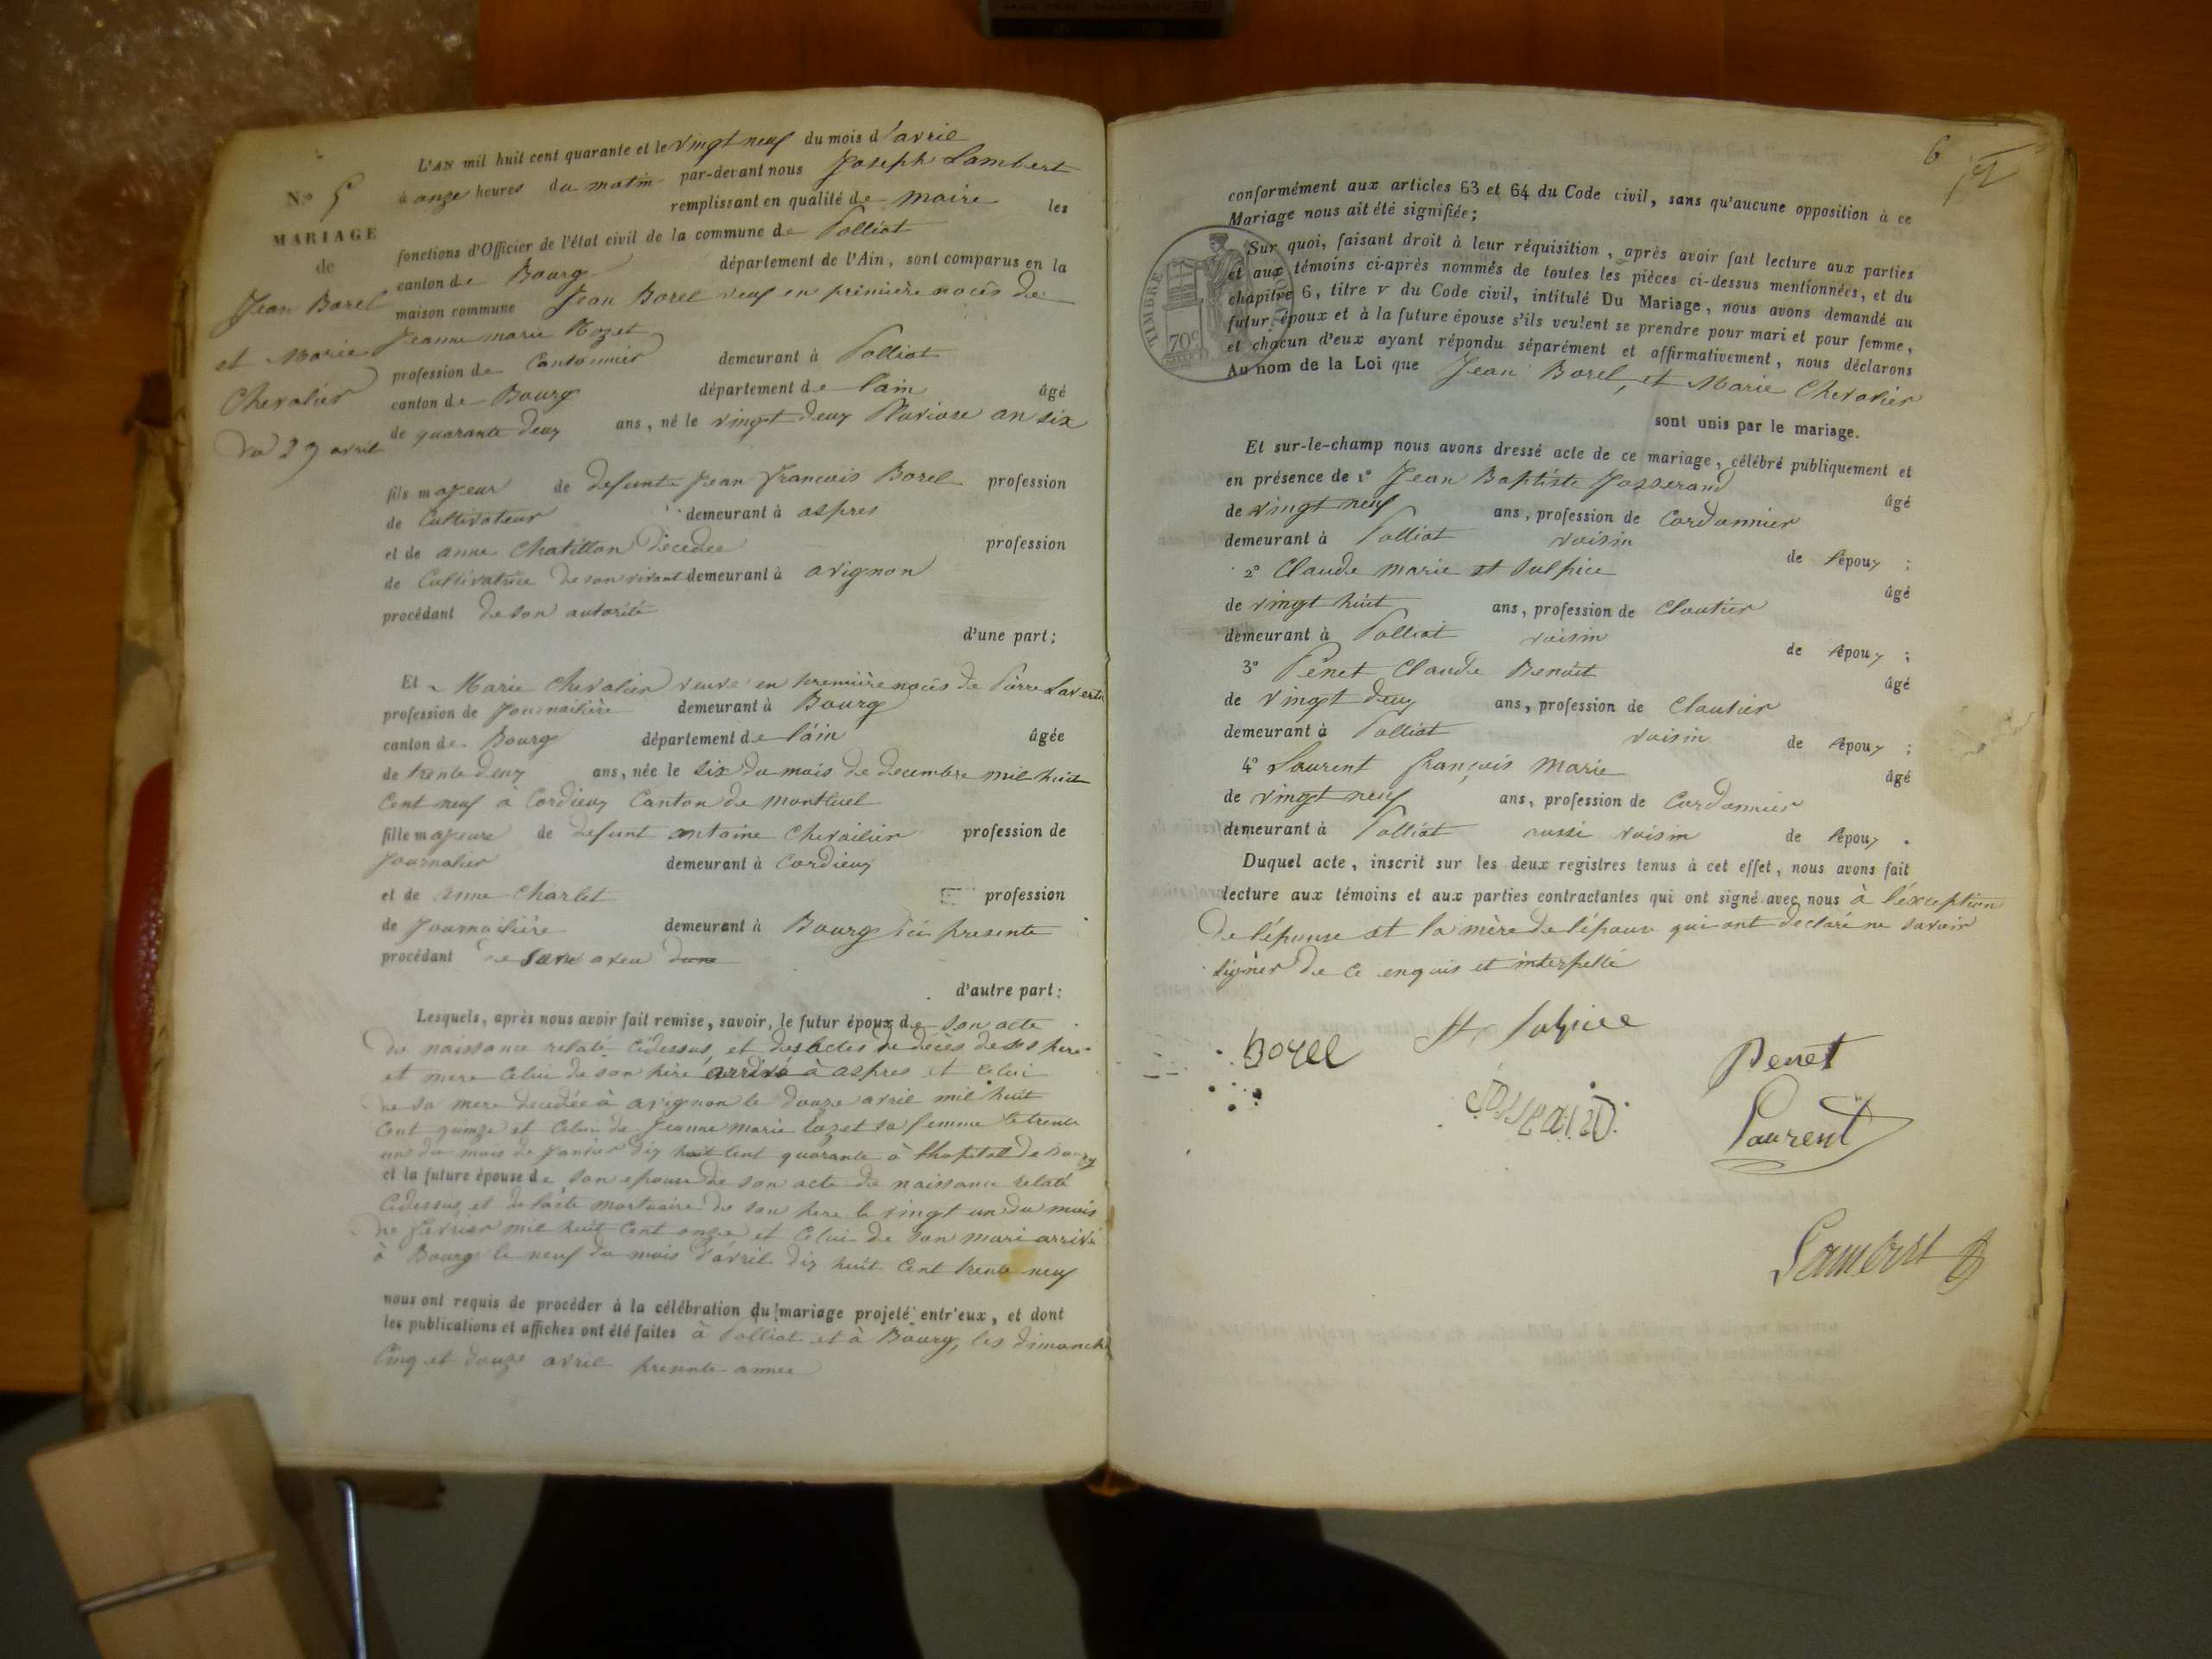 L'AN mil huit cent quarante et le vingt neuf du mois d'avril
à onze heures du matin par-devant nous Joseph Lambert
remplissant en qualité de maire les
fonctions d'Officier de l'état civil de la commune de Polliat
canton de Bourg département de l'Ain, sont comparus en la
maison commune Jean Borel veuf en première noces de
Jeanne marie Rozet
profession de Cantonnier demeurant à Polliat
canton de Bourg département de l'ain âgé
de quarante deux ans, né le vingt deux Pluviose an six
N° 5
MARIAGE
de
Jean Borel
et Marie
Chevalier
Du 29 avril
fils majeur de defunte Jean francois Borel profession
de Cultivateur demeurant à aspres
et de anne Chatillon décedée profession
de Cultivatrice de son vivant demeurant à avignon
procédant de son autorité
d'une part;
Et Marie Chevalier veuve en première noces de Pierre
profession de Journalière demeurant à Bourg
canton de Bourg département de l'ain âgée
de trente deux ans, née le six du mois de decembre mil huit
Cent neuf à Cordieux Canton de montluel
fille majeure de defunt antoine Chevailier profession de
Journalier demeurant à Cordieux
et de anne Charlet profession
de Journalière demeurant à Bourg ici presente
procédant
d'autre part:
Lesquels, après nous avoir fait remise, savoir, le futur époux de son acte
de naissance relaté cidessus, et des actes de deces de ses pere
et mere Celui de son père arrivé à aspres et celui
de sa mere decedée à avignon le douze avril mil huit
Cent quinze et Celui de Jeanne marie sa femme le trente
un du mois de Janvier dix huit Cent quarante à l'hopital de Bourg
et la future épouse de son epouse de son acte de naissance relaté
Cidessus et de l'acte mortuaire de son pere le vingt un du mois
de fevrier mil huit Cent onze et Celui de son mari arrivé
à Bourg le neuf du mois d'avril dix huit Cent trente neuf
nous ont requis de procéder à la célébration du mariage projeté entr'eux, et dont
les publications et affiches ont été faites à Polliat et à Bourg, les dimanche
Cinq et douze avril presente annee
6
conformément aux articles 63 et 64 du Code civil, sans qu'aucune opposition à ce
Mariage nous ait été signifiée;
Sur quoi, faisant droit à leur réquisition, après avoir fait lecture aux parties
et aux témoins ci-après nommés de toutes les pièces ci-dessus mentionnées, et du
chapitre 6, titre v du Code civil, intitulé Du Mariage, nous avons demandé au
futur époux et à la future épouse s'ils veulent se prendre pour mari et pour femme,
et chacun d'eux ayant répondu séparément et affirmativement, nous déclarons
Au nom de la Loi que Jean Borel, et Marie Chevalier
sont unis par le mariage.
TIMBRE
70c
Et sur-le-champ nous avons dressé acte de ce mariage, célébré publiquement et
en présence de 1° Jean Baptiste Josserand âgé
de vingt neuf ans, profession de Cordonnier
demeurant à Polliat voisin de l'époux ;
2° Claude marie st Sulpice âgé
de vingt huit ans, profession de Cloutier
demeurant à Polliat voisin de l'époux ;
3° Penet Claude Benoit âgé
de vingt deux ans, profession de Cloutier
demeurant à Polliat voisin de l'époux ;
4° Laurent françois Marie âgé
de vingt neuf ans, profession de Cordonnier
demeurant à Polliat aussi voisin de l'époux .
Duquel acte, inscrit sur les deux registres tenus à cet effet, nous avons fait
lecture aux témoins et aux parties contractantes qui ont signé avec nous à l'exception
de l'épouse et la mère de l'épouse qui ont declaré ne savoir
signer de ce enquis et interpellé
Borel St Sulpice Penet
Josserand Laurent
Lambert